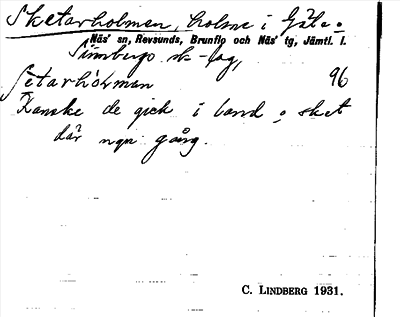 Sketarholmen, holme i Gäle-
Näs' sn, Revsunds, Brunflo och Näs' tg, Jämtl. l.
Sunnbergs sk-lag,
Setarhólman 96
Kanske de gick i land o sket
där ngn gång.
C. LINDBERG 1931.